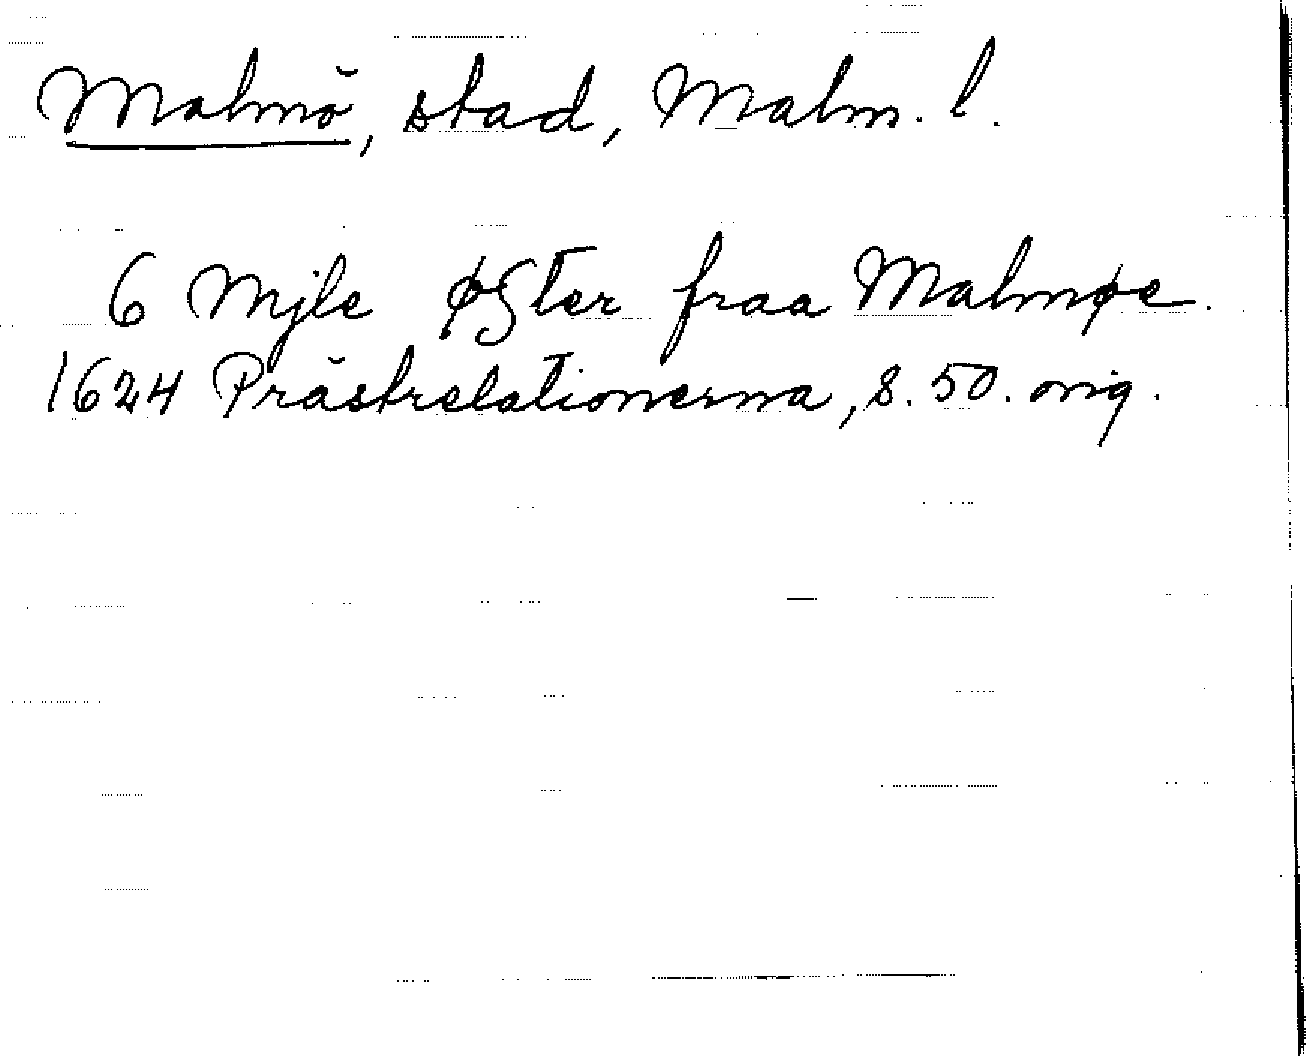 Malmö, stad, Malm. l.
6 Mjle øster fraa Malmøe.
1624 Prästrelationerna, s. 50. orig.